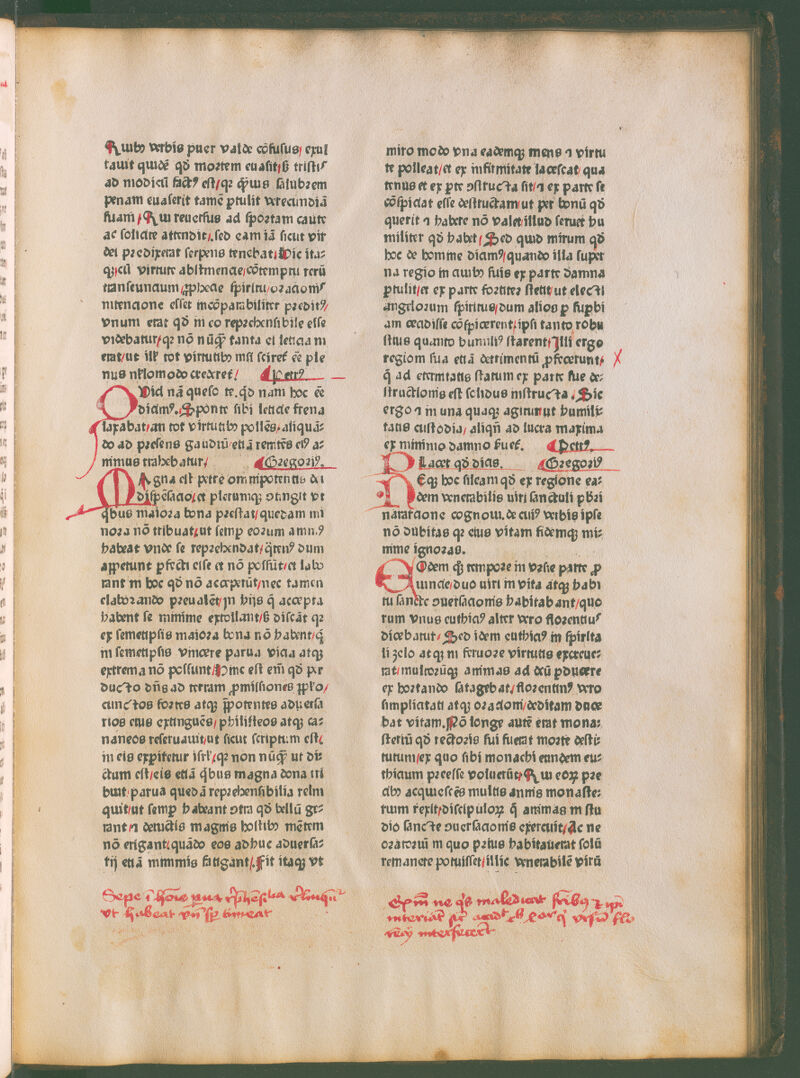 Quibꝰ verbis puer valde cōfusus/ exul
tauit quidē qd̛ mortem euasit/ sꝫ tristiꝰ
ad modicū factꝰ est/ qꝛ q̄uis salubrem
penam euaserit tamē ꝓtulit verecundiā
suam/ Qui reuersus ad sportam caute
ac solicite attendit/ sed eam iā sicut vir
dei predixerat serpens tenebat/ Hic ita⸗
qꝫ/ cū virtute abstinencie/ cōtemptu rerū
transeuncium/ ꝓphecie spiritu/ oracionis
intencione esset incōparabiliter preditꝰ/
vnum erat qd̛ in eo reprehensibile esse
videbatur/ qꝛ nō nūq̄ tanta ei leticia in
erat/ ut illis tot virtutibꝰ nisi sciret̉ eē ple
nus nullomodo crederet̉/ Petrꝰ.
Quid nā queso te. qd̛ nam hoc eē
dicimꝰ. Sponte sibi leticie frena
laxabat/ an tot virtutibꝰ pollēs/ aliquā⸗
do ad presens gaudiū etiā renitēs eiꝰ a⸗
nimus trahebatur/ Gregoriꝰ.
Magna est petre omnipotentis dei
dispēsacio/ et plerumqꝫ ↄtingit vt
qͥbus maiora bona prestat/ quedam mi
nora nō tribuat/ ut semꝑ eorum animꝰ
habeat vnde se reprehendat/ qͣtenꝰ dum
appetunt ꝑfecti esse et nō possūt/ et labo
rant in hoc qd̛ nō acceperūt/ nec tamen
elaborando preualēt/ in hijs q̄ accepta
habent se minime extollant/ sꝫ discāt qꝛ
ex semetipsis maiora bona nō habent/ qͥ
in semetipsis vincere parua vicia atqꝫ
extrema nō possunt/ Hinc est em̄ qd̛ per
ducto dn̄s ad terram ꝓmissiones ꝓplo/
cunctos fortes atqꝫ p̄potentes aduersa
rios eius extinguēs/ philisteos atqꝫ ca⸗
naneos reseruauit/ ut sicut scriptum est/
in eis expiretur isrl̄/ qꝛ non nūq̄ ut di⸗
ctum est/ eis etiā qͥbus magna dona tri
buit/ parua quedā reprehensibilia relin
quit/ ut semꝑ habeant ↄtra qd̛ bellū ge⸗
rant/ ⁊ deuictis magnis hostibꝰ mētem
nō erigant/ quādo eos adhuc aduersa⸗
rij etiā minimis fatigant/ Fit itaqꝫ vt
Sepe
vt habeat timeat
miro modo vna eademqꝫ mens ⁊ virtu
te polleat/ et ex infirmitate lacescat/ qua
tenus et ex ꝑte ↄstructa sit/ ⁊ ex parte se
cōspiciat esse destructam/ ut per bonū qd̛
querit ⁊ habere nō valet/ illud seruet hu
militer qd̛ habet/ Sed quid mirum qd̛
hoc de homine diamꝰ/ quando illa super
na regio in ciuibꝰ suis ex parte damna
ꝑtulit/ et ex parte fortiter stetit/ ut electi
angelorum spiritus/ dum alios ꝑ suꝑbi
am cecidisse cōspicerent/ ipsi tanto robu
stius quanto humiliꝰ starent/ Illi ergo
regioni sua etiā detrimentū ꝓfecerunt/
q̄ ad eternitatis statum ex parte sue de⸗
structionis est solidius instructa/ Sic
ergo ⁊ in una quaqꝫ agitur/ ut humili⸗
tatis custodia/ aliqn̄ ad lucra maxima
ex minimo damno seruet̉. Petrꝰ.
Placet qd̛ dicis. Gregoriꝰ.
Neqꝫ hoc sileam qd̛ ex regione ea⸗
dem venerabilis uiri sanctuli pbr̄i
narratione cognoui. de cuiꝰ verbis ipse
nō dubitas qꝛ eius vitam fidemqꝫ mi⸗
nime ignoras.
Eodem qꝫ tempore in vrsie parte ꝓ
uincie/ duo uiri in vita atqꝫ habi
tu sancte ↄuersacionis habitabant/ quo
rum vnus euthiciꝰ alter vero florentiuꝰ
dicebatur/ Sed idem euthiciꝰ in spirita
li zelo atqꝫ in feruore virtutis excreue⸗
rat/ multorūqꝫ animas ad deū ꝑducere
ex hortando satagebat/ florentinꝰ vero
simplicitati atqꝫ oracioni/ deditam duce
bat vitam. Nō longe autē erat mona⸗
steriū qd̛ rectoris sui fuerat morte desti⸗
tutum/ ex quo sibi monachi eundem eu⸗
thicium preesse voluerūt/ Qui eoꝝ pre
cibꝰ acquiescēs multis annis monaste⸗
rium rexit/ discipuloꝝ qꝫ animas in stu
dio sancte ↄuersacionis exercuit/ Ac ne
oratoriū in quo prius habitauerat solū
remanere potuisset/ illic venerabilē virū
ne qͥs maledicat